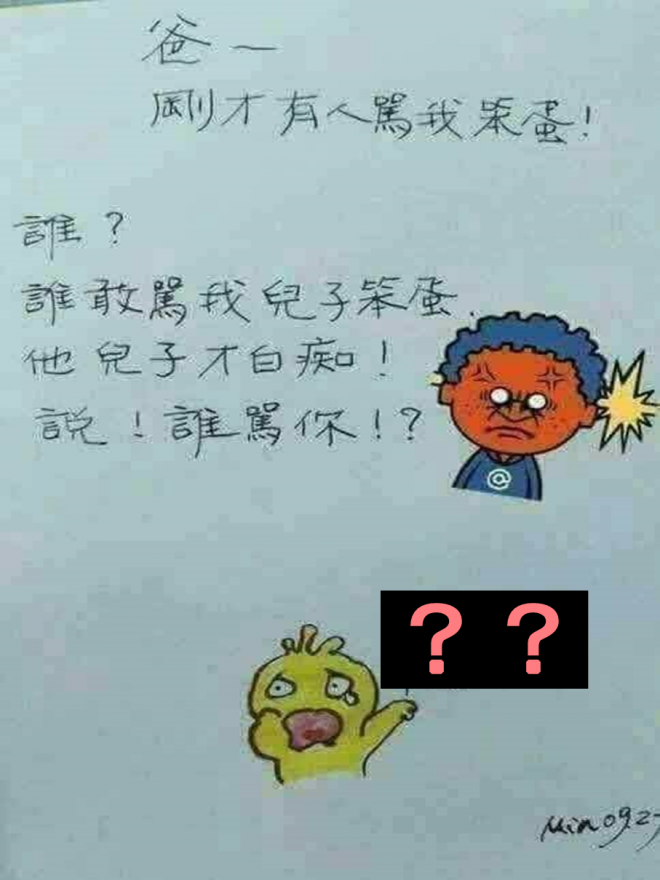 爸~
剛才有人罵我笨蛋!
誰?
誰敢罵我兒子笨蛋.
他兒子才白痴!
説!誰罵你!?
@
??
Min0927